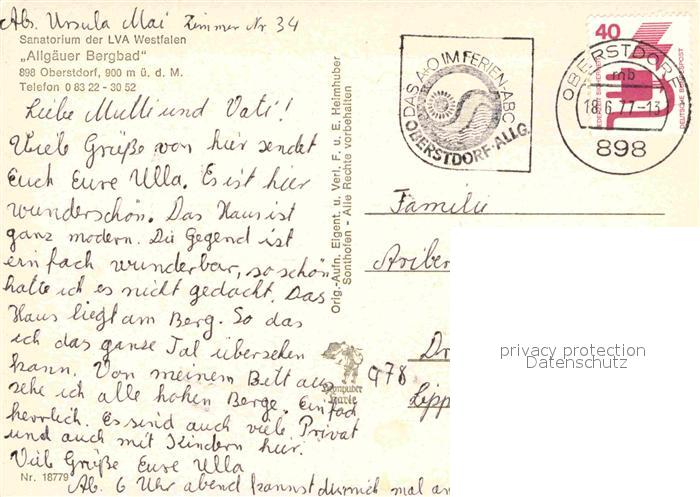 Abs. Ursula Mai Zimmer Nr 34
Sanatorium der LVA Westfalen
„Allgäuer Bergbad"
898 Oberstdorf, 900 m ü. d. M.
Telefon 0 83 22 - 30 52
Liebe Mutti und Vati!
Viele Grüße von hier sendet
Euch Eure Ulla. Es ist hier
wunderschön. Das Haus ist
ganz modern. Die Gegend ist
einfach wunderbar, so schön
hatte ich es nicht gedacht. Das
Haus liegt am Berg. So das
ich das ganse Tal übersehen
kann. Von meinem Bett aus
sehe ich alle hohen Berge. Einfach
herrlich. Es sind auch viele Privat
und auch mit Kindern hier.
Viele Grüße Eure Ulla
Nr. 18779
Ab. 6 Uhr abend kannst du mich mal an
Orig.-Aufn. Eigent. u. Verl. F. u. E. Heimhuber
Sonthofen - Alle Rechte vorbehalten
DAS A-O IM FERIEN-ABC
OBERSTDORF-ALLG.
40
DEUTSCHE BUNDESPOST
OBERSTDORF
mb
18.6.77-13
898
Familie
Ariber
Dr
Lipp
G78
privacy protection
Datenschutz